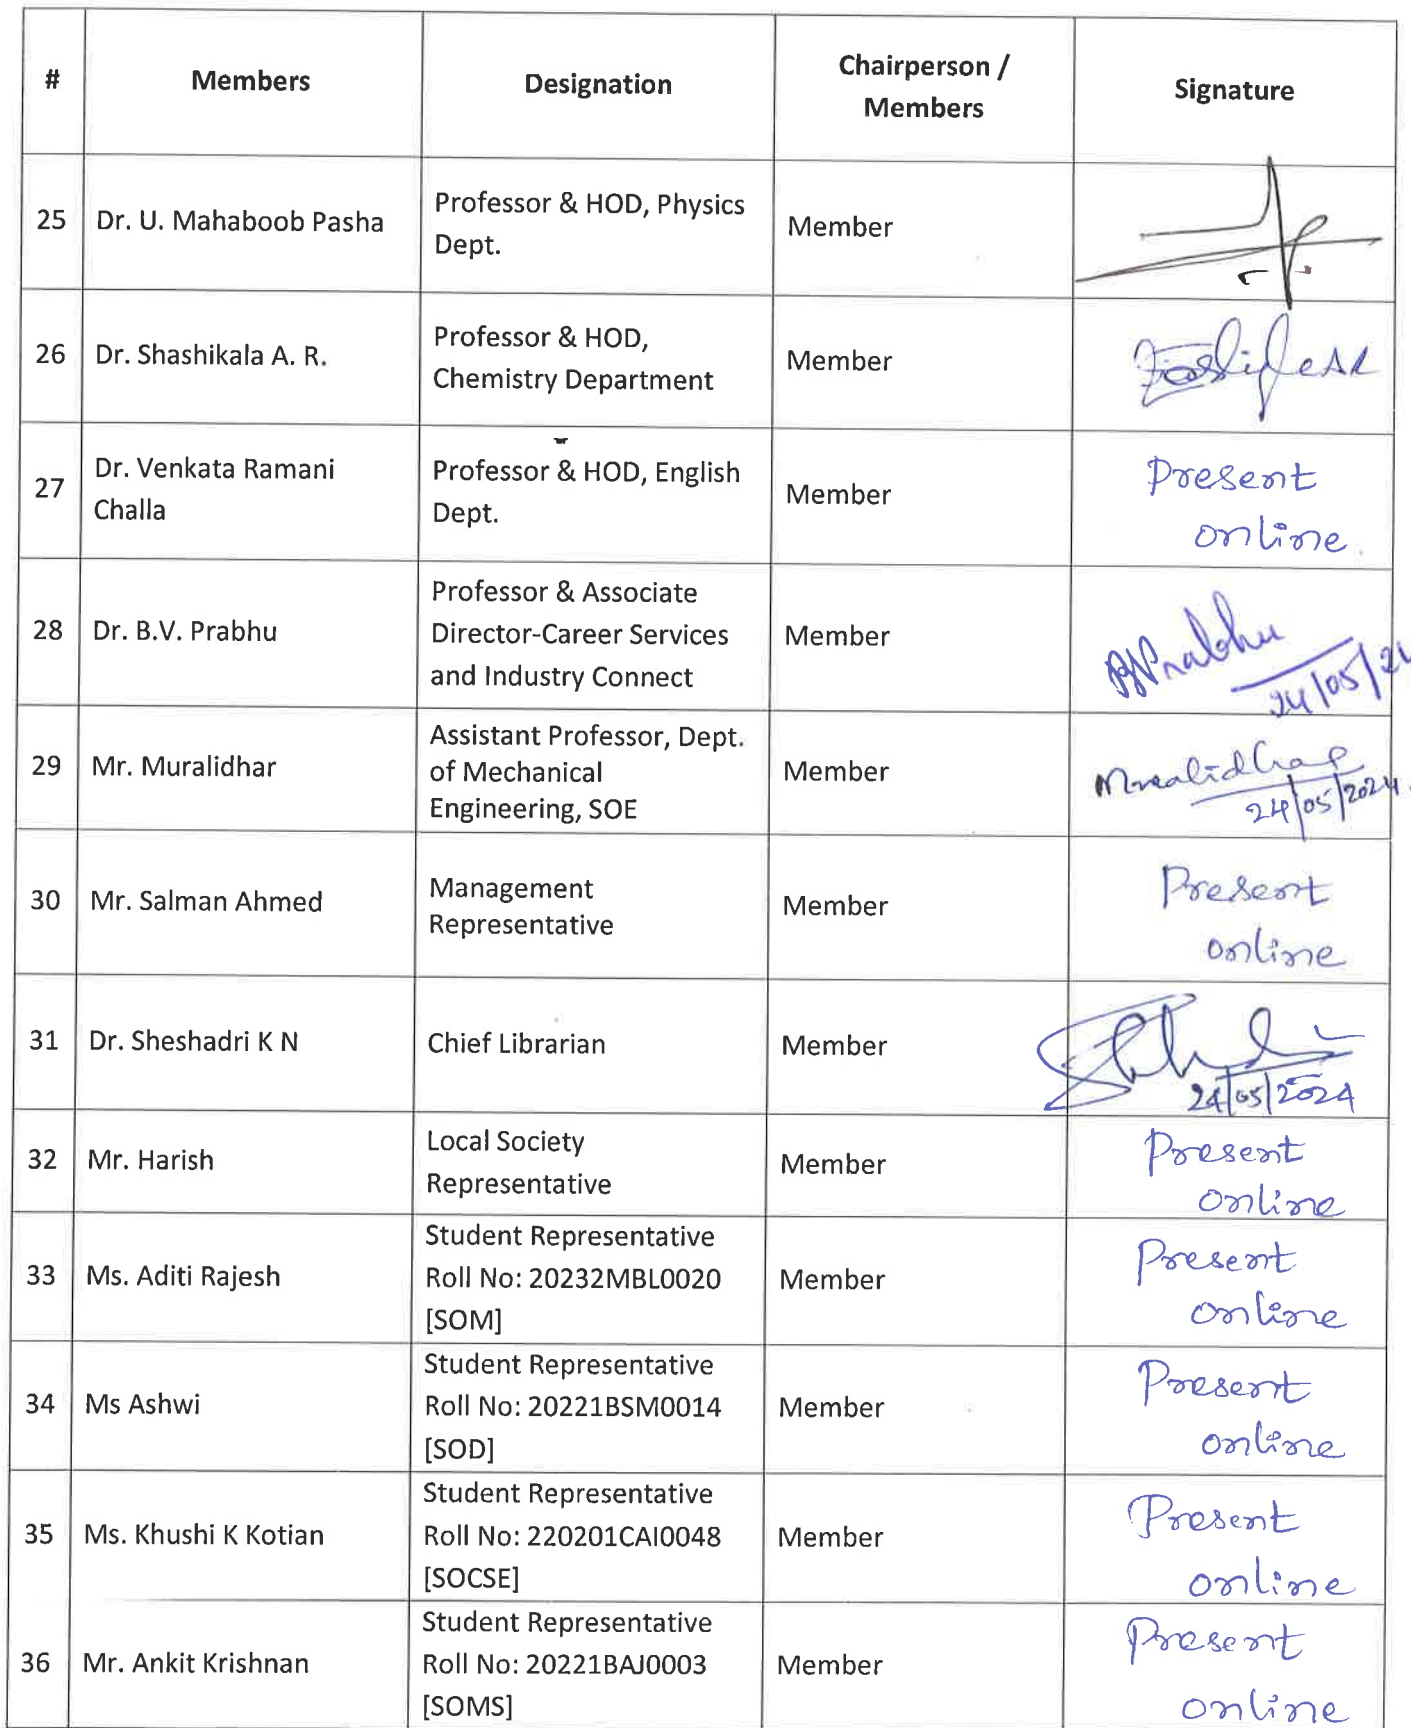 #
Members
Designation
Chairperson /
Members
Signature
25
Dr. U. Mahaboob Pasha
Professor & HOD, Physics
Dept.
Member
26
Dr. Shashikala A. R.
Professor & HOD,
Chemistry Department
Member
27
Dr. Venkata Ramani
Challa
Professor & HOD, English
Dept.
Member
Present
online
28
Dr. B.V. Prabhu
Professor & Associate
Director-Career Services
and Industry Connect
Member
BVPrabhu
24/05/24
29
Mr. Muralidhar
Assistant Professor, Dept.
of Mechanical
Engineering, SOE
Member
Muralidhar
24/05/2024
30
Mr. Salman Ahmed
Management
Representative
Member
Present
online
31
Dr. Sheshadri K N
Chief Librarian
Member
24/05/2024
32
Mr. Harish
Local Society
Representative
Member
Present
online
33
Ms. Aditi Rajesh
Student Representative
Roll No: 20232MBL0020
[SOM]
Member
Present
online
34
Ms Ashwi
Student Representative
Roll No: 20221BSM0014
[SOD]
Member
Present
online
35
Ms. Khushi K Kotian
Student Representative
Roll No: 220201CAI0048
[SOCSE]
Member
Present
online
36
Mr. Ankit Krishnan
Student Representative
Roll No: 20221BAJ0003
[SOMS]
Member
Present
online